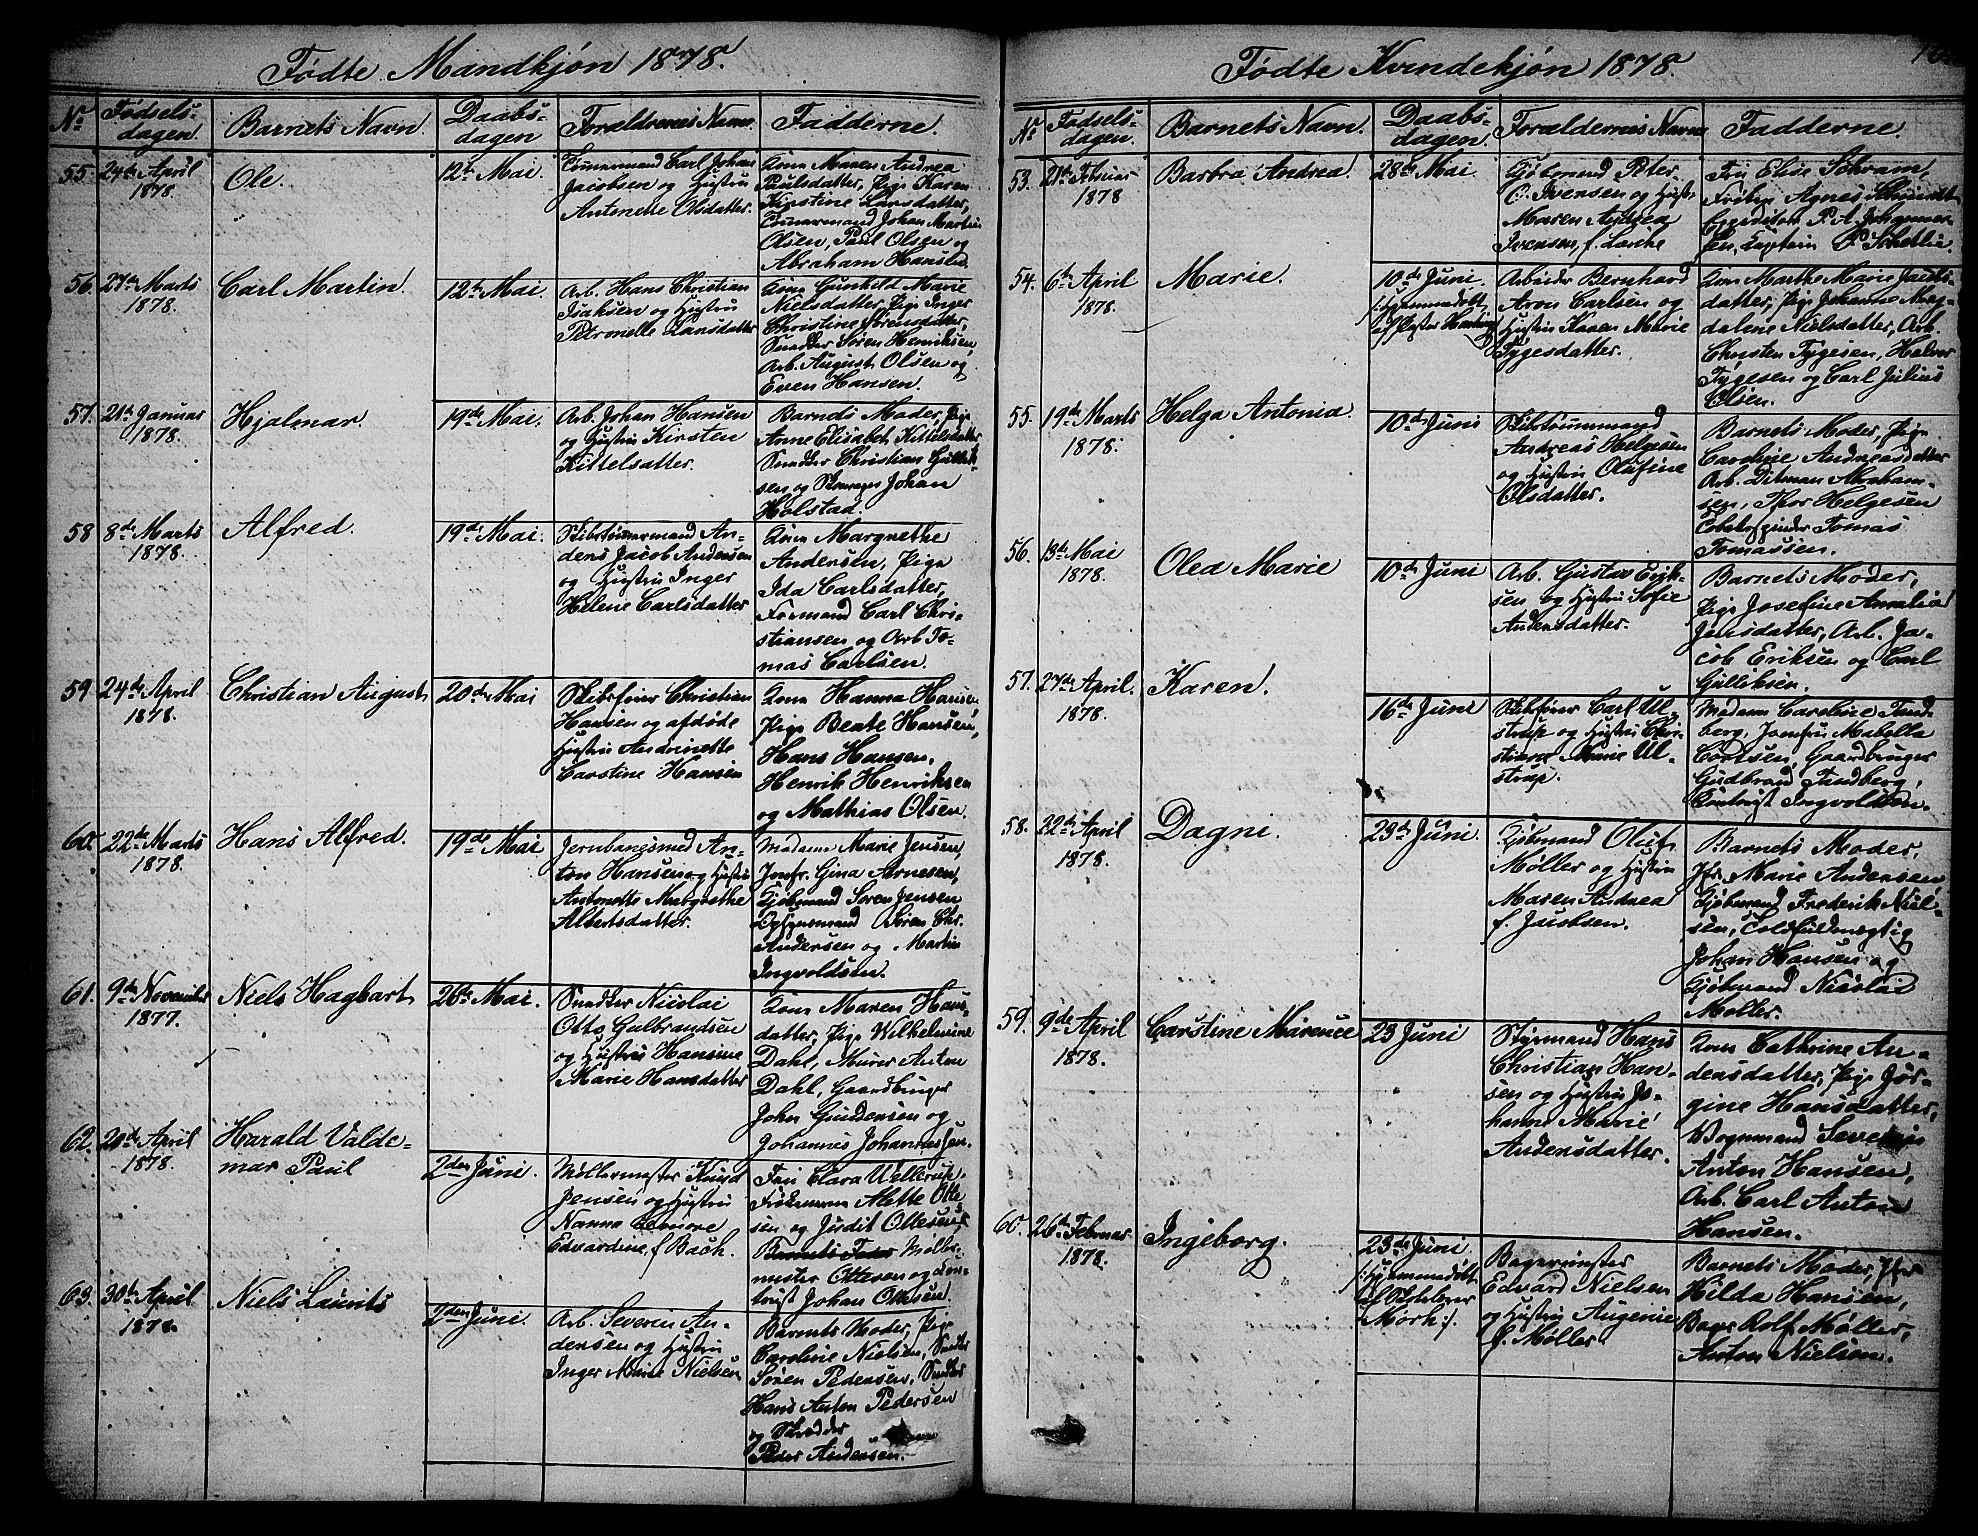 Fødte Mandkjøn 1878.
No
Fødsels-
dagen.
Barnets Navn.
Daabs-
dagen
Forældrenes Navne.
Fadderne.
55.
24de April
1878.
Ole.
12te Mai.
Tømmermand Carl Johan
Jacobsen og Hustru
Antonette Olsdatter.
Kone Maren Andrea
Paulsdatter, Pige Karen
Kirstine Larsdatter,
Tømmermand Johan Martin
Olsen, Paul Olsen og
Abraham Hansen.
56.
27de Marts
1878.
Carl Martin.
12te Mai.
Arb. Hans Christian
Isaksen og Hustru
Petronelle Larsdatter
Kone Gunhild Marie
Nielsdatter, Pige Inger
Christine Sørensdatter,
Snedker Søren Henriksen,
Arb. August Olsen og
Even Hansen.
57.
21de Januar
1878.
Hjalmar.
19de Mai.
Arb. Johan Hansen
og Hustru Kirsten
Kittelsatter.
Barnets Moder, Pige
Anne Elisabet Kittelsdatter
Snedker Christian Gullik-
sen og Johan
Holstad.
58
8de Marts
1878.
Alfred.
19de Mai.
Skibstømmermand An-
ders Jacob Andersen
og Hustru Inger
Helene Carlsdatter
Kone Margrethe
Andersen, Pige
Ida Carlsdatter,
Formand Carl Chri-
stiansen og Arb. To-
mas Carlsen.
59
24de April
1878.
Christian August
20de Mai
Skibsfører Christian
Hansen og afdøde
Hustru Andrinette
Carstine Hansen
Kone Hanna Hansen,
Pige Beate Hansen,
Hans Hansen,
Henrik Henriksen
og Mathias Olsen.
60.
22de Marts
1878.
Hans Alfred.
19de Mai
Jernbanesmed An-
ton Hansen og Hustru
Antonette Margrethe
Albertsdatter.
Madam Marie Jensen,
Jomfr. Gina Arnesen,
Kjøbmand Søren Jensen
Søren Chr.
Andersen og Martin
Ingvoldsen.
61.
9de November
1877.
Niels Hagbart
26de Mai.
Snedker Nicolai
Otto Gulbrandsen
og Hustru Hansine
Marie Hansdatter
Kone Maren Hans-
datter, Pige Wilhelmine
Dahl, Murer Anton
Dahl, Gaardbruger
John Guddensen og
Johannes Johannessen.
62.
20de April
1878.
Harald Valde-
mar Paul
2den Juni.
Møllermester Knud
Jensen og Hustru
Nanna Lenore
Edvardine, f. Bach.
Fru Clara Wellerup,
Frøkenerne Mette Otte
sen og Judit Ottesen,
Barnets Fader Møller-
mester Ottesen og Con-
torist Johan Ottesen.
63.
30de April
1878.
Niels Laurits
2den Juni.
Arb. Severin An-
dersen og Hustru
Inger Marie Nielsen
Barnets Moder, Pige
Caroline Nielsen, Snedker
Søren Pedersen, Snedker
Hans Anton Pedersen
og Skrædder
Peder Andersen.
Fødte Kvindekjøn 1878.
No
Fødsels-
dagen.
Barnets Navn.
Daabs-
dagen.
Forældrenes Navne
Fadderne.
53.
21de Februar
1878
Barbra Andrea.
28de Mai.
Kjøbmand Peter
C. Ivensen og Hustru
Maren Andrea
Ivensen, f. Lorche
Fru Elise Schram,
Frøken Agnes Schmidt
Expeditør P. A. Johannes-
sen, Captain P. Schetlie.
54.
6te April
1878.
Marie.
10de Juni.
/: Hjemmedøbt
af Præsten
Arbeider Bernhard
Aron Carlsen og
Hustru Karen Marie
Tygesdatter.
Kone Marthe Marie Jacobs-
datter, Pige Johanne Mag-
dalene Nielsdatter, Arb.
Christen Tygesen, Halvor
Tygesen og Carl Julius
Olsen.
55.
19de Marts
1878.
Helga Antonia.
10de Juni
Skibstømmermand
Andreas Helgesen
og Hustru Olufine
Olsdatter.
Barnets Moder, Pige
Caroline Andreasdatter
Arb. Ditman Abraham-
sen, Thor Helgesen
Tomas
Tomassen.
56.
13de Mai
1878.
Olea Marie
10de Juni
Arb. Gustav Erik-
sen og Hustru Sofie
Andersdatter.
Barnets Moder,
Pige Josefine Amalia
Jensdatter, Arb. Ja-
cob Eriksen og Carl
Gulliksen.
57.
27de April.
1878.
Karen.
16de Juni
Skibsfører Carl Ul-
strup og Hustru Chri-
stiane Marie Ul-
strup.
Madam Caroline Tand-
berg, Jomfru Mabella
Cortsen, Gaardbruger
Gudbrand Tandberg,
Contorist Ingvoldsen.
58.
22de April
1878.
Dagni.
23de Juni.
Kjøbmand Oluf
Møller og Hustru
Maren Andrea
f. Jacobsen.
Barnets Moder,
Jfr. Marie Andersen
Kjøbmand Frederik Niel-
sen,
Johan Hansen og
Kjøbmand Nicolai
Møller.
59.
9de April
1878.
Carstine Marence
23 Juni
Styrmand Hans
Christian Han-
sen og Hustru Jo-
hanne Marie
Andersdatter.
Kone Cathrine An-
dersdatter, Pige Jør-
gine Hansdatter,
Vognmand Severin
Anton Hansen,
Arb. Carl Anton
Hansen.
60.
26de Februar
1878.
Ingeborg.
23de Juni
/: Hjemmedøbt
af
Mork :/.
Bagermester
Edvard Nielsen
og Hustru Augenie
f. Møller
Barnets Moder, Jfr.
Hilda Hansen,
Bager Rolf Møller,
Anton Nielsen.